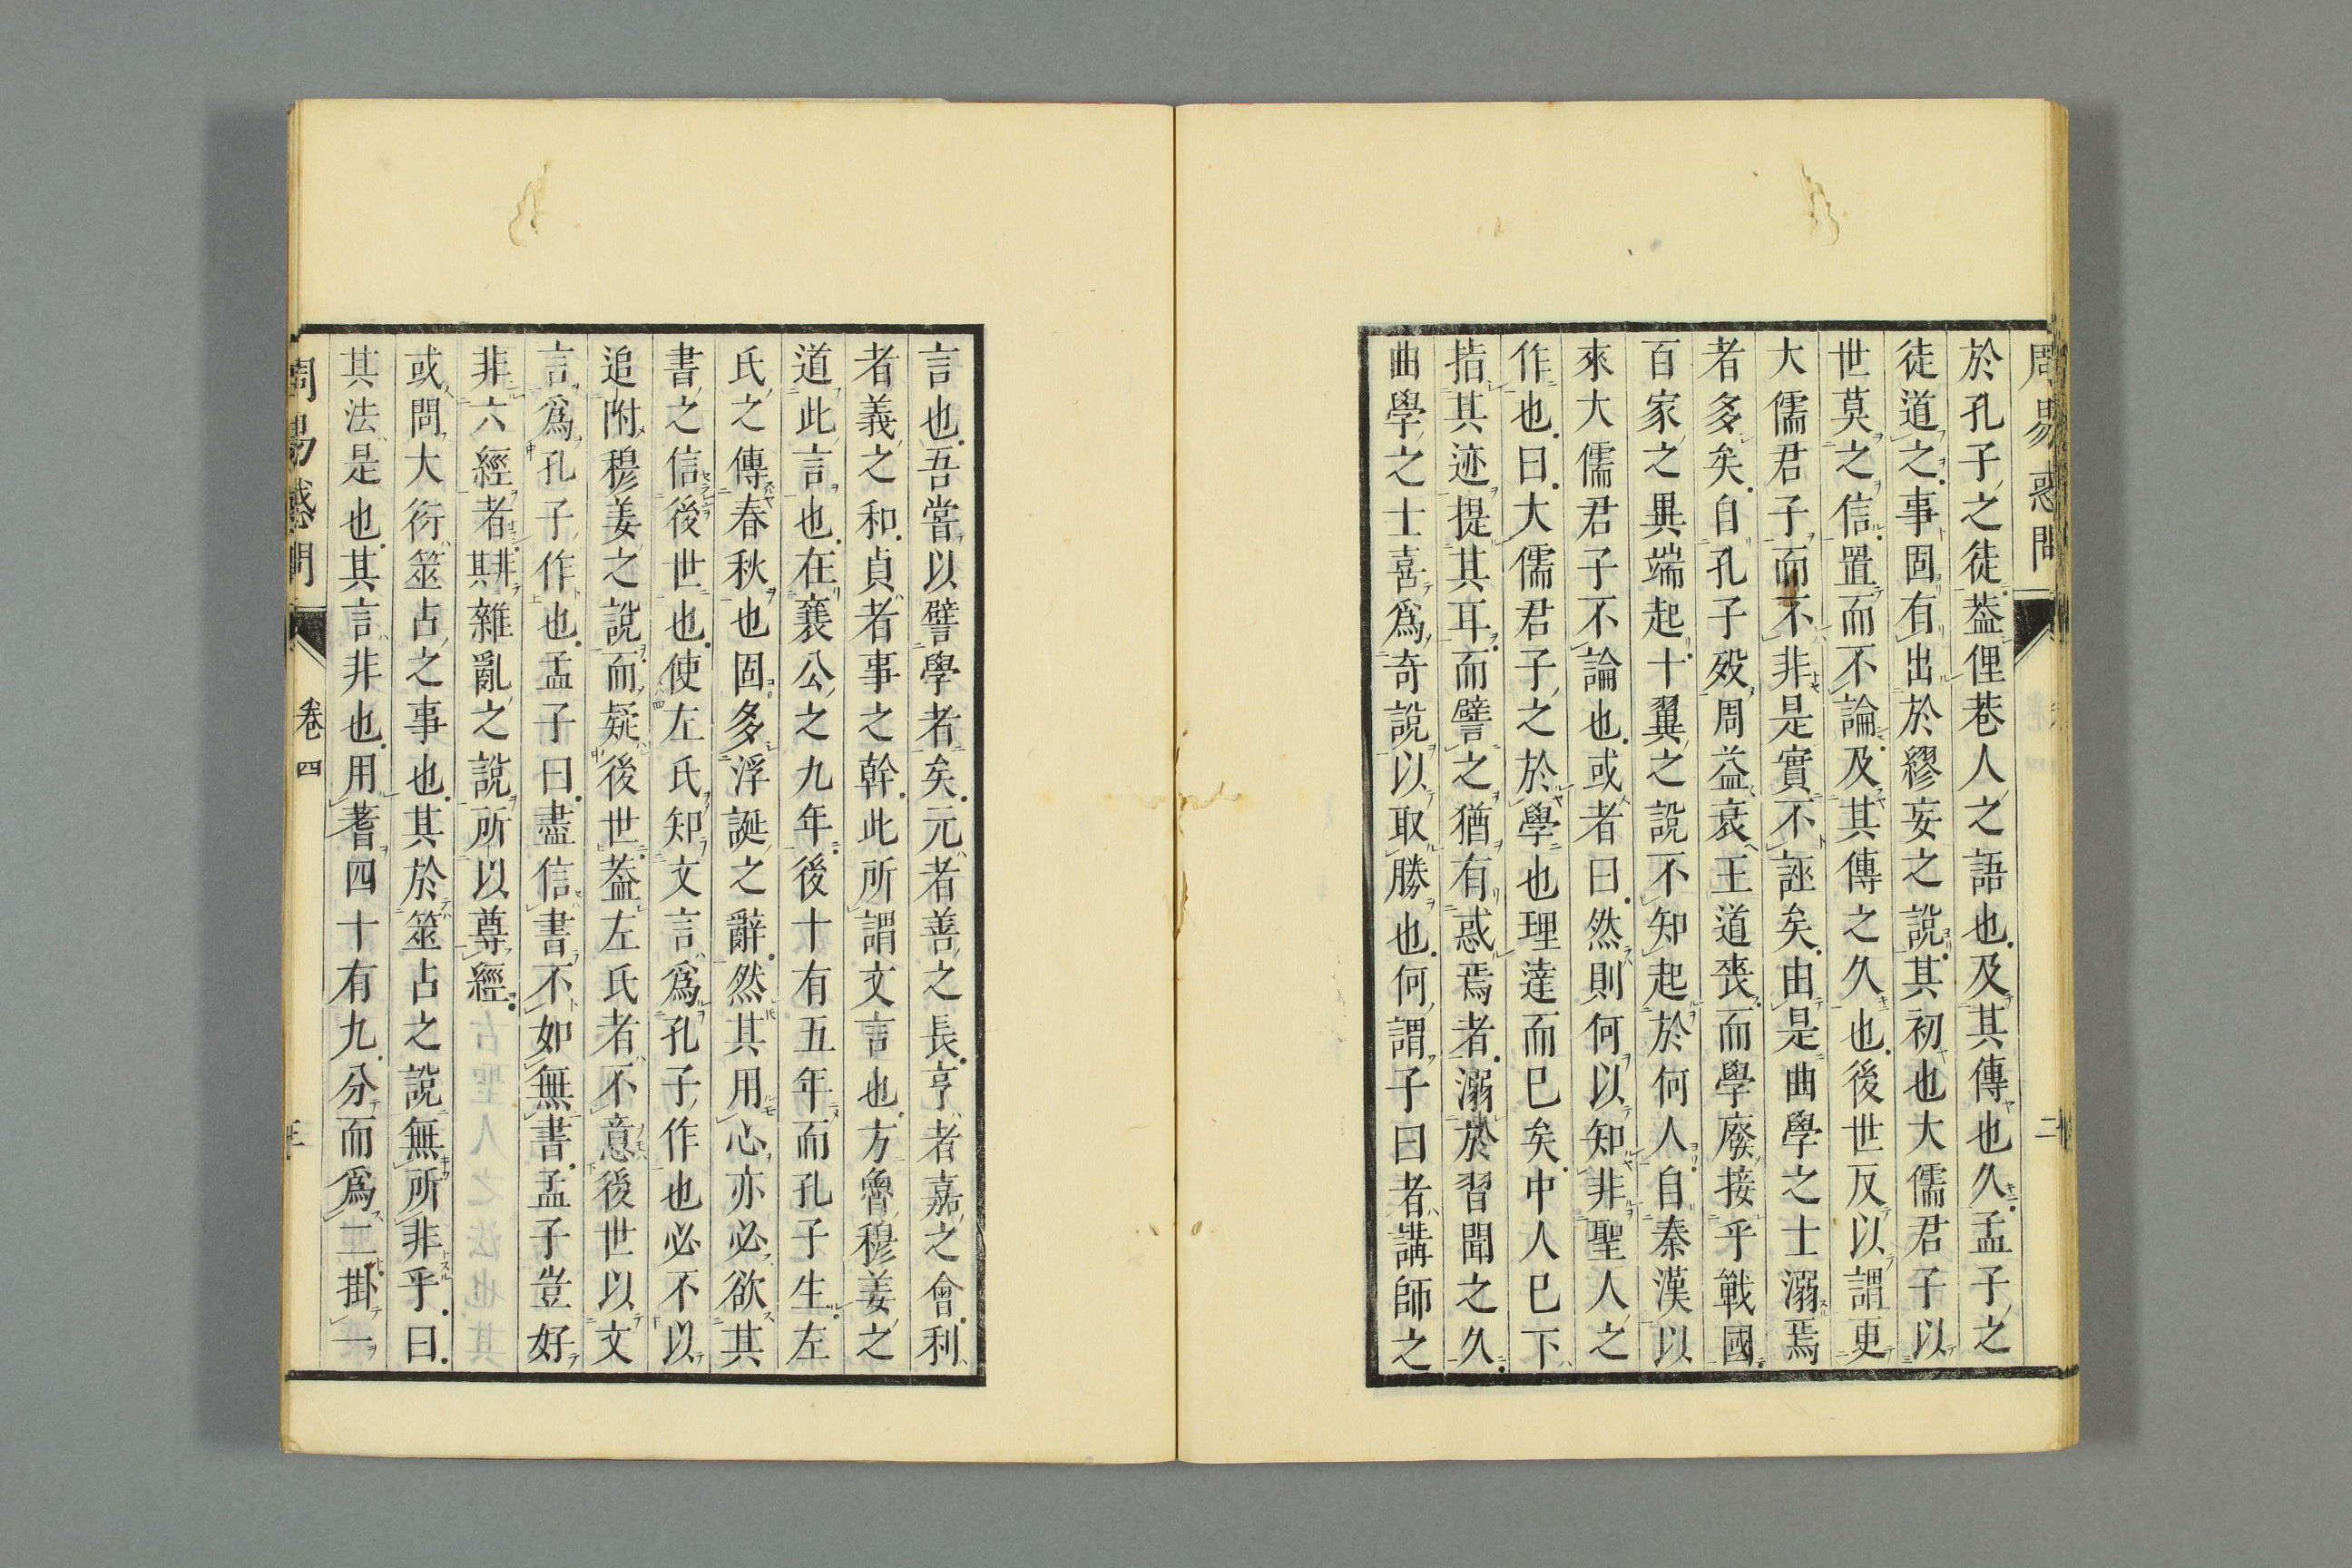 周易惑問 二
於孔子之徒蓋俚巷人之語也及其傳也久孟子之
徒道之事固有出於繆妄之說其初也大儒君子以
世莫之信置而不論及其傳之久也後世反以謂更
大儒君子而不非是實不誣矣由是曲學之士溺焉
者多矣自孔子歿周益衰王道喪而學廢接乎戰國
百家之異端起十翼之說不知起於何人自秦漢以
來大儒君子不論也或者曰然則何以知非聖人之
作也曰大儒君子之於學也理達而已矣中人已下
指其迹提其耳而譬之猶有惑焉者溺於習聞之久
曲學之士喜爲奇說以取勝也何謂子曰者講師之
言也吾嘗以譬學者矣元者善之長亨者嘉之會利
者義之和貞者事之幹此所謂文言也方魯穆姜之
道此言也在襄公之九年後十有五年而孔子生左
氏之傳春秋也固多浮誕之辭然其用心亦必欲其
書之信後世也使左氏知文言爲孔子作也必不以
追附穆姜之說而疑後世蓋左氏者不意後世以文
言爲孔子作也孟子曰盡信書不如無書孟子豈好
非六經者斯非雜亂之說所以尊經
或問大衍筮占之事也其於筮占之說無所非乎曰
其法是也其言非也用蓍四十有九分而爲二掛一
周易惑問 卷四 三